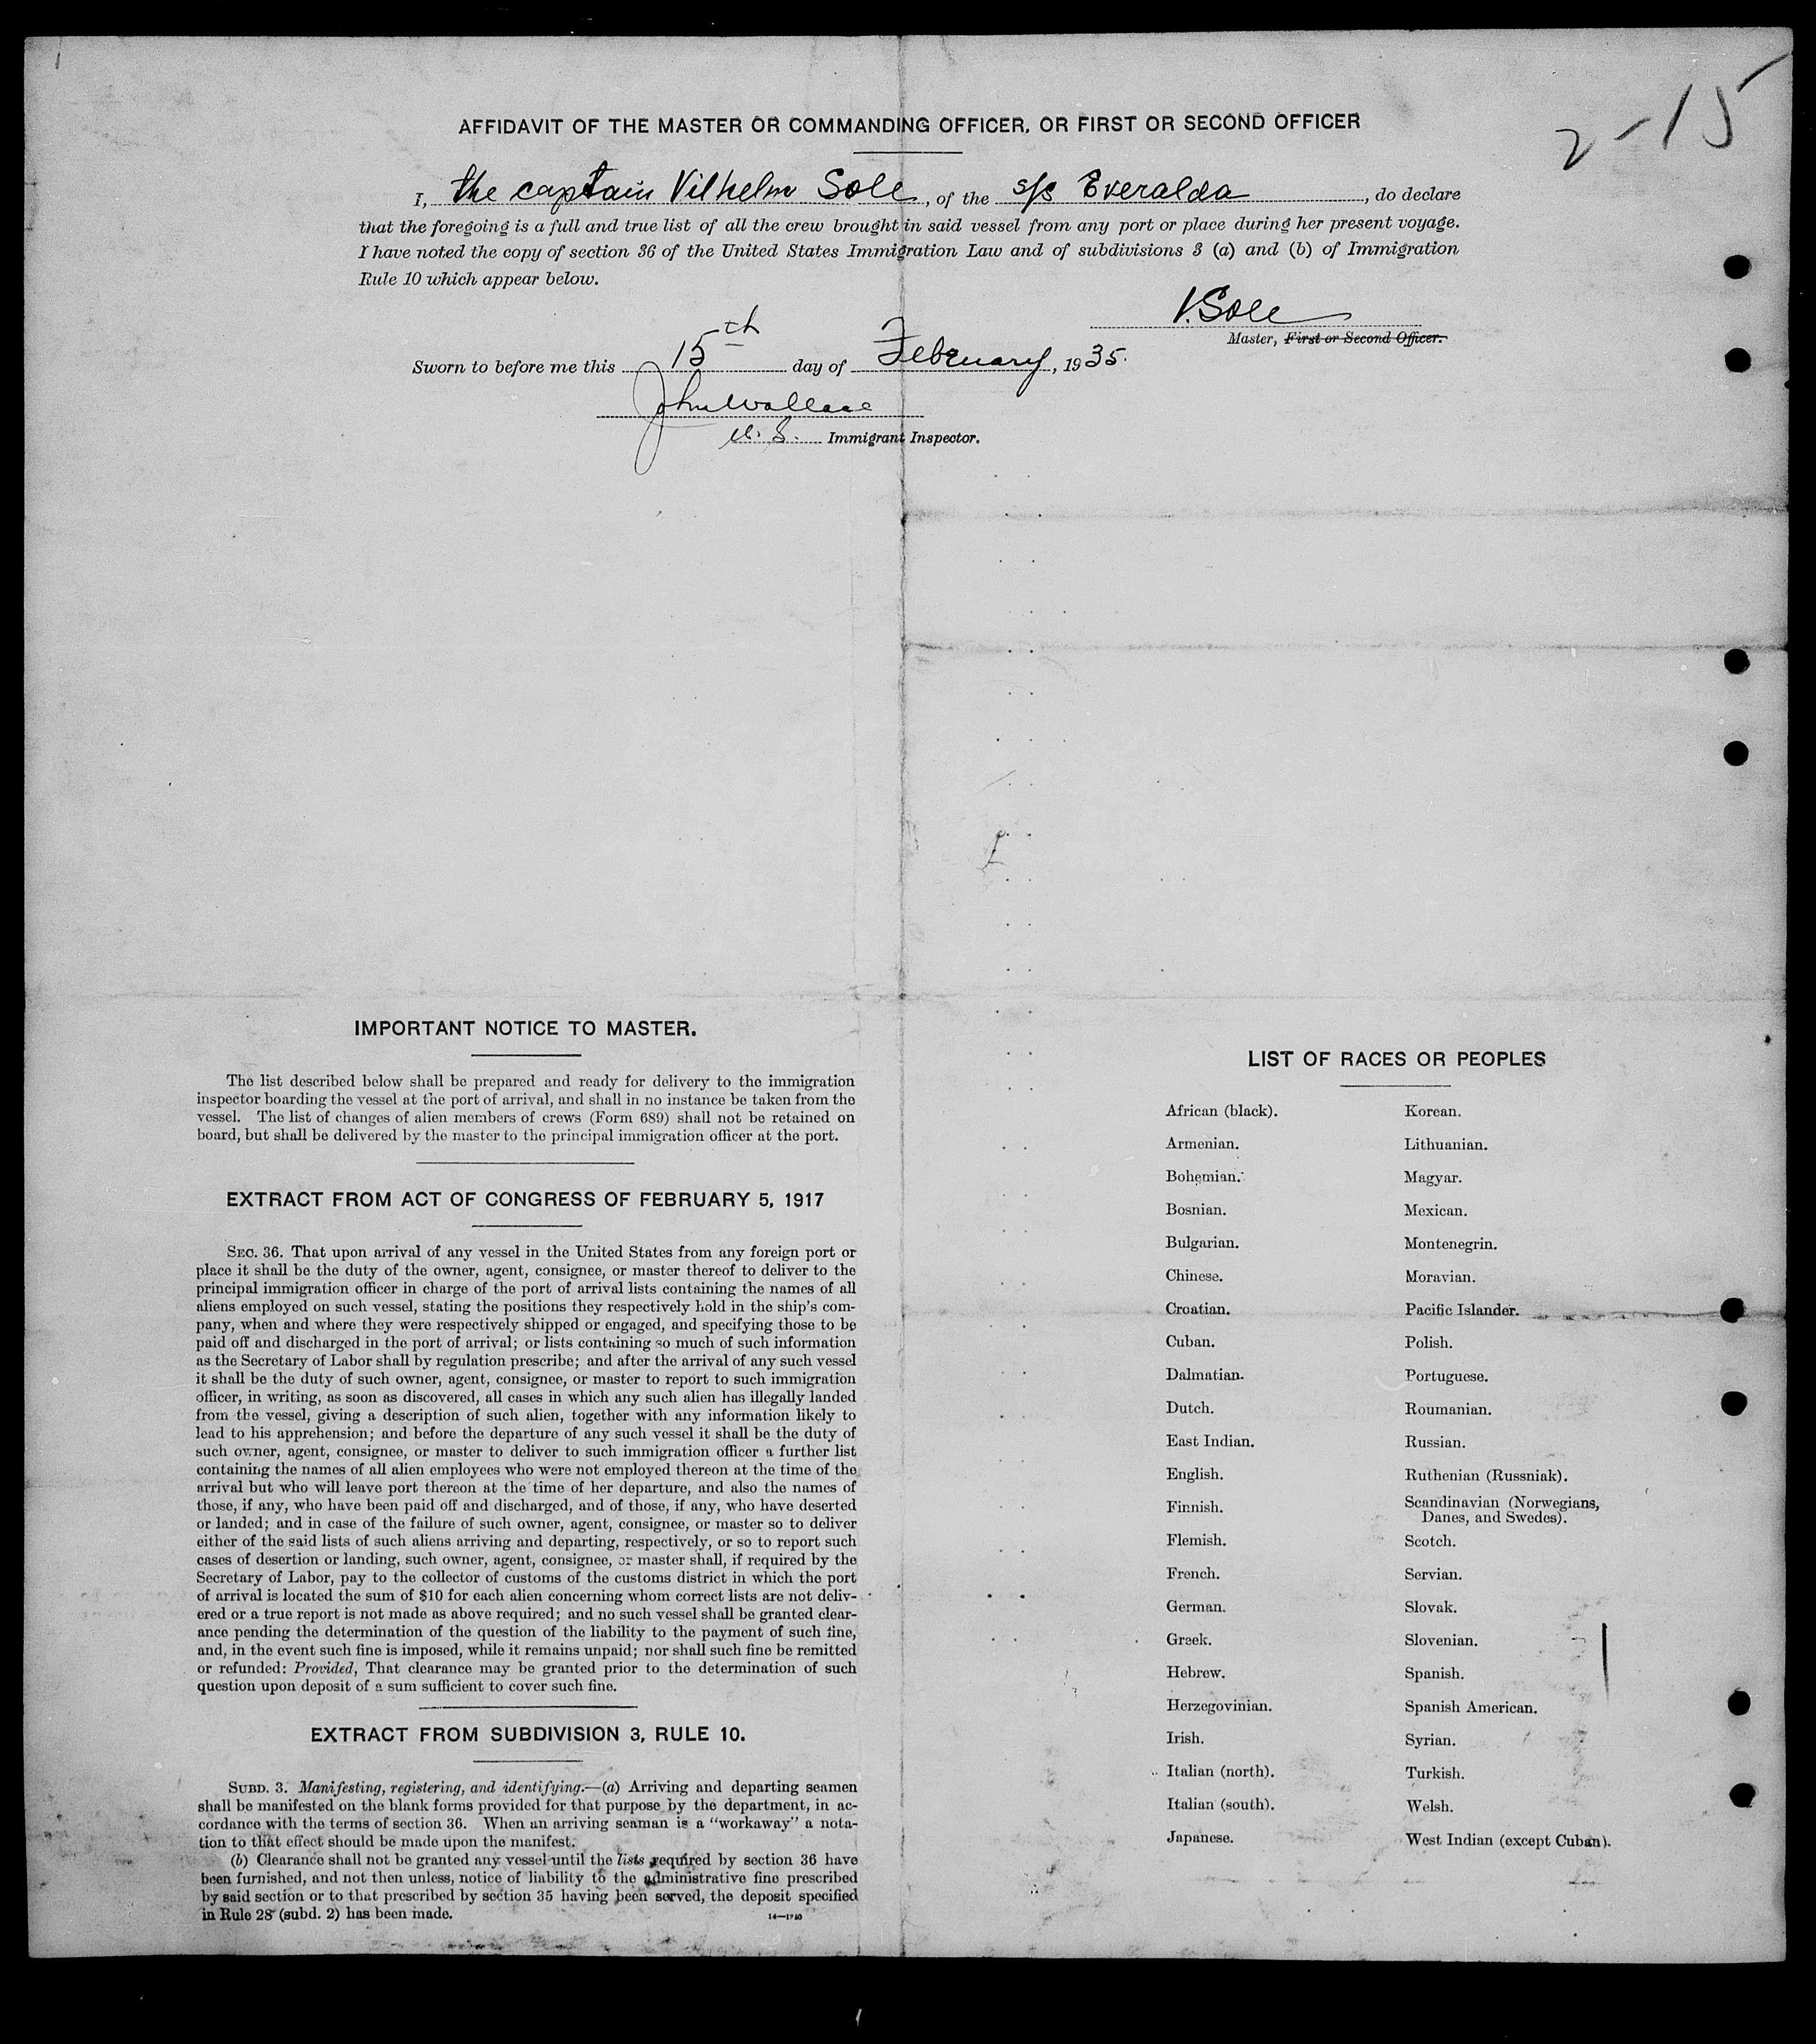 2-15
AFFIDAVIT OF THE MASTER OR COMMANDING OFFICER, OR FIRST OR SECOND OFFICER
I, the captain Vilhelm Sole, of the s/s Everalda, do declare
that the foregoing is a full and true list of all the crew brought in said vessel from any port or place during her present voyage.
I have noted the copy of section 36 of the United States Immigration Law and of subdivisions 3 (a) and (b) of Immigration
Rule 10 which appear below.
V. Sole
Master, First or Second Officer.
Sworn to before me this 15th day of February, 1935.
John Wallace
U. S. Immigrant Inspector.
IMPORTANT NOTICE TO MASTER.
The list described below shall be prepared and ready for delivery to the immigration
inspector boarding the vessel at the port of arrival, and shall in no instance be taken from the
vessel. The list of changes of alien members of crews (Form 689) shall not be retained on
board, but shall be delivered by the master to the principal immigration officer at the port.
EXTRACT FROM ACT OF CONGRESS OF FEBRUARY 5, 1917
SEC. 36. That upon arrival of any vessel in the United States from any foreign port or
place it shall be the duty of the owner, agent, consignee, or master thereof to deliver to the
principal immigration officer in charge of the port of arrival lists containing the names of all
aliens employed on such vessel, stating the positions they respectively hold in the ship's com-
pany, when and where they were respectively shipped or engaged, and specifying those to be
paid off and discharged in the port of arrival; or lists containing so much of such information
as the Secretary of Labor shall by regulation prescribe; and after the arrival of any such vessel
it shall be the duty of such owner, agent, consignee, or master to report to such immigration
officer, in writing, as soon as discovered, all cases in which any such alien has illegally landed
from the vessel, giving a description of such alien, together with any information likely to
lead to his apprehension; and before the departure of any such vessel it shall be the duty of
such owner, agent, consignee, or master to deliver to such immigration officer a further list
containing the names of all alien employees who were not employed thereon at the time of the
arrival but who will leave port thereon at the time of her departure, and also the names of
those, if any, who have been paid off and discharged, and of those, if any, who have deserted
or landed; and in case of the failure of such owner, agent, consignee, or master so to deliver
either of the said lists of such aliens arriving and departing, respectively, or so to report such
cases of desertion or landing, such owner, agent, consignee, or master shall, if required by the
Secretary of Labor, pay to the collector of customs of the customs district in which the port
of arrival is located the sum of $10 for each alien concerning whom correct lists are not deliv-
ered or a true report is not made as above required; and no such vessel shall be granted clear-
ance pending the determination of the question of the liability to the payment of such fine,
and, in the event such fine is imposed, while it remains unpaid; nor shall such fine be remitted
or refunded: Provided, That clearance may be granted prior to the determination of such
question upon deposit of a sum sufficient to cover such fine.
EXTRACT FROM SUBDIVISION 3, RULE 10.
SUBD. 3. Manifesting, registering, and identifying.—(a) Arriving and departing seamen
shall be manifested on the blank forms provided for that purpose by the department, in ac-
cordance with the terms of section 36. When an arriving seaman is a "workaway" a nota-
tion to that effect should be made upon the manifest.
(b) Clearance shall not be granted any vessel until the lists required by section 36 have
been furnished, and not then unless, notice of liability to the administrative fine prescribed
by said section or to that prescribed by section 35 having been served, the deposit specified
in Rule 28 (subd. 2) has been made.
LIST OF RACES OR PEOPLES
African (black).
Armenian.
Bohemian.
Bosnian.
Bulgarian.
Chinese.
Croatian.
Cuban.
Dalmatian.
Dutch.
East Indian.
English.
Finnish.
Flemish.
French.
German.
Greek.
Hebrew.
Herzegovinian.
Irish.
Italian (north).
Italian (south).
Japanese.
Korean.
Lithuanian.
Magyar.
Mexican.
Montenegrin.
Moravian.
Pacific Islander.
Polish.
Portuguese.
Roumanian.
Russian.
Ruthenian (Russniak).
Scandinavian (Norwegians,
Danes, and Swedes).
Scotch.
Servian.
Slovak.
Slovenian.
Spanish.
Spanish American.
Syrian.
Turkish.
Welsh.
West Indian (except Cuban).